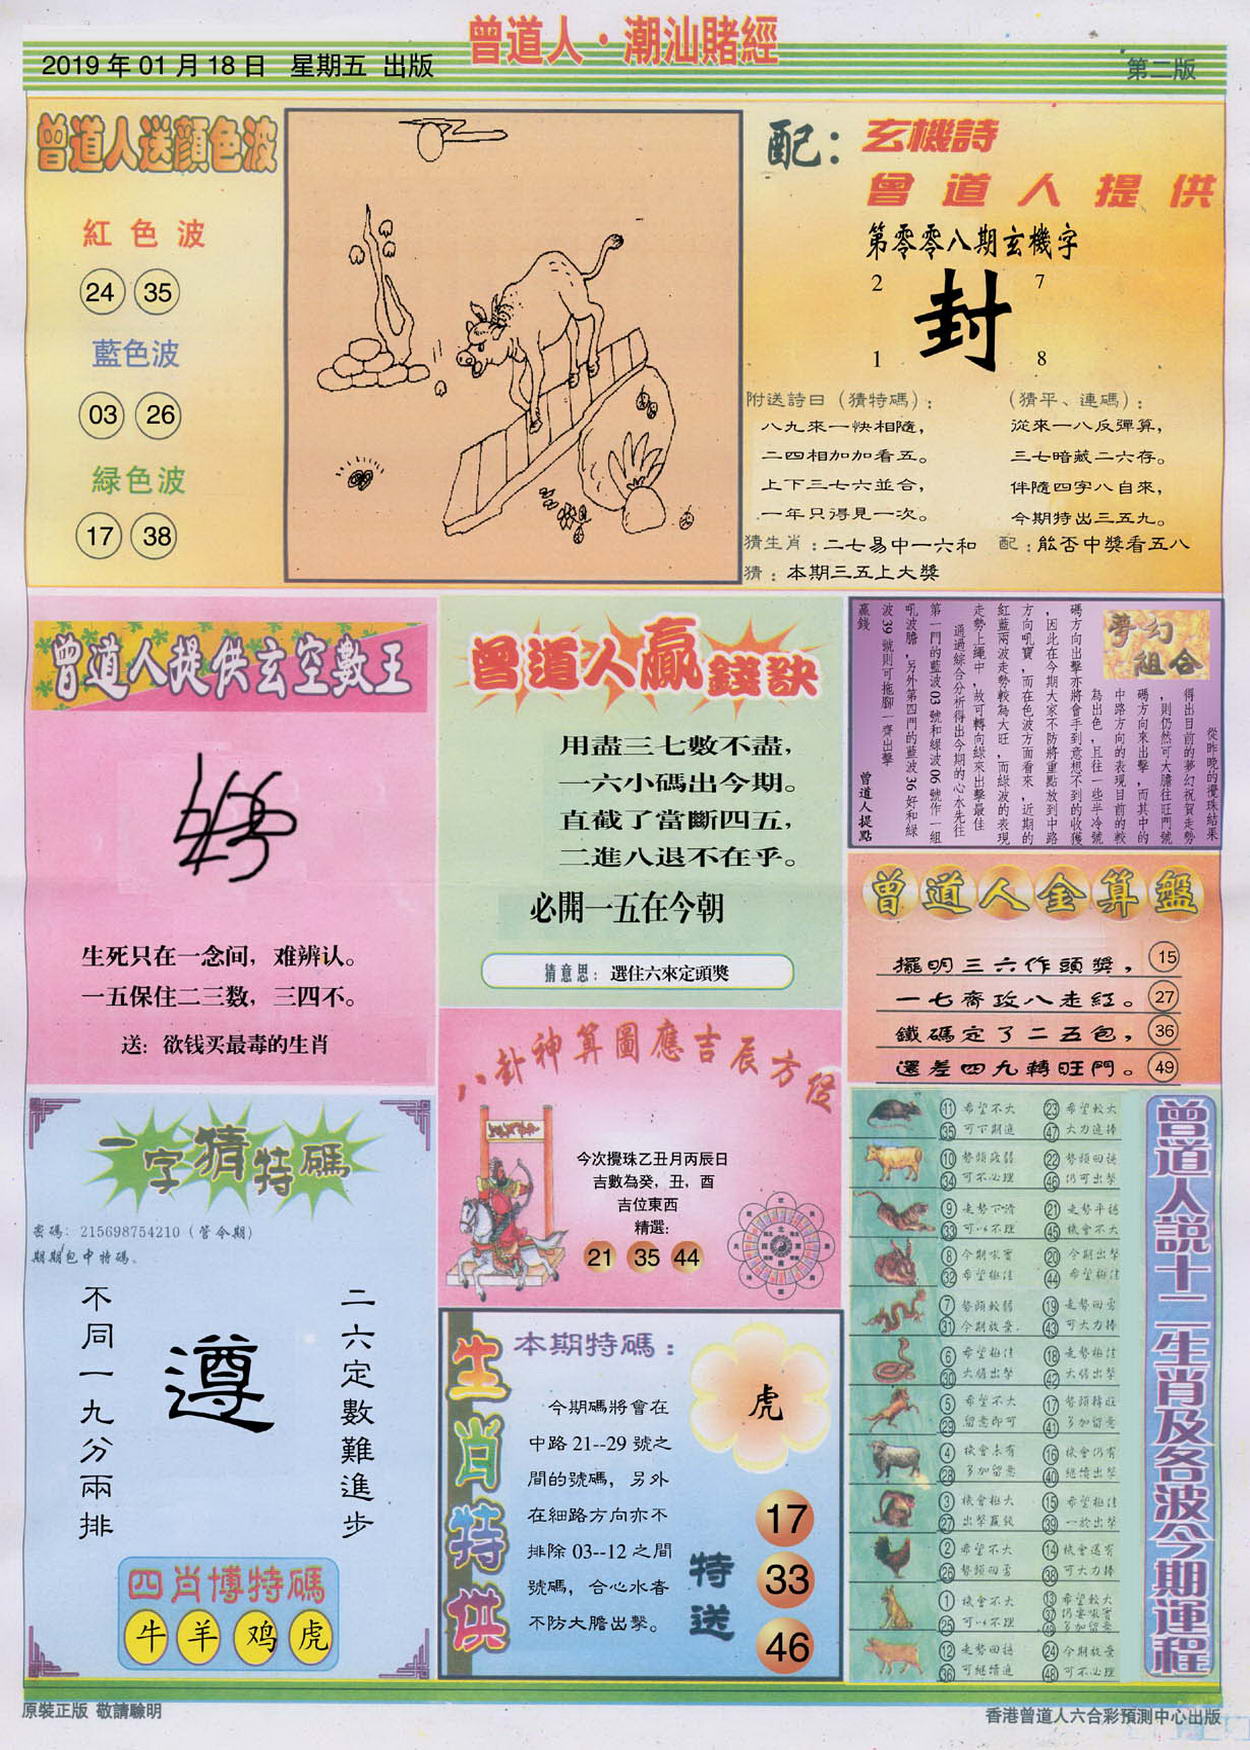 曾道人·潮汕賭經
2019 年 01 月 18 日 星期五 出版
第二版
曾道人送顏色波
紅色波
24 35
藍色波
03 26
緑色波
17 38
配：玄機詩
曾道人提供
第零零八期玄機字
2 7
封
1 8
附送詩日（猜特碼）：
八九來一快相隨，
二四相加加看五。
上下三七六並合，
一年只得見一次。
（猜平、連碼）：
從來一八反彈算，
三七暗藏二六存。
伴隨四字八自來，
今期特出三五九。
猜生肖：二七易中一六和 配：能否中獎看五八
猜：本期三五上大獎
曾道人提供玄空數王
生死只在一念间，难辨认。
一五保住二三数，三四不。
送：欲钱买最毒的生肖
曾道人贏錢訣
用盡三七數不盡，
一六小碼出今期。
直截了當斷四五，
二進八退不在乎。
必開一五在今朝
猜意思：選住六來定頭獎
夢幻
組合
從昨晚的攪珠結果
得出目前的夢幻祝賀走勢
，則仍然可大膽往旺門號
碼方向來出擊，而其中的
中路方向的表現目前的較
為出色，且往一些半冷號
碼方向出擊亦將會手到意想不到的收獲
，因此在今期大家不防將重點放到中路
方向吼寶，而在色波方面看來，近期的
紅藍兩波走勢較為大旺，而綠波的表現
走勢上繩中，故可轉向綠來出擊最佳
通過綜合分析得出今期的心水先往
第一門的藍波03號和綠波06號作一組
吼波膽，另外第四門的藍波36好和綠
波39號則可拖腳一齊出擊
贏錢 曾道人提點
曾道人金算盤
擺明三六作頭獎， 15
一七齊攻八走紅。 27
鐵碼定了二五包， 36
還差四九轉旺門。 49
一字猜特碼
密碼：215698754210（管令期）
期期包中特碼。
二六定數難進步
遵
不同一九分兩排
四肖博特碼
牛 羊 鸡 虎
八卦神算圖應吉辰方位
今次攪珠乙丑月丙辰日
吉數為癸，丑，酉
吉位東西
精選：
21 35 44
生肖特供
本期特碼：
虎
今期碼將會在
中路 21--29 號之
間的號碼，另外
在細路方向亦不
排除 03--12 之間
號碼，合心水者
不防大膽出擊。
特送
17
33
46
曾道人説十二生肖及各波今期運程
11 希望不大 23 希望較大
35 可下期進 47 大力進捧
10 勢頭疲弱 22 勢頭回穩
34 可不必理 46 仍可出擊
9 走勢下滑 21 走勢平穩
33 可以不理 45 機會不大
8 今期吼實 20 今期出擊
32 希望極佳 44 希望極佳
7 勢頭較弱 19 走勢回勇
31 今期放棄. 43 可大力捧
6 希望極佳 18 走勢極佳
30 大膽出擊 42 大膽出擊
5 希望不大 17 勢頭轉旺
29 留意即可 41 多加留意
4 機會未有 16 機會仍有
28 多加留意 40 繼續出擊
3 機會極大 15 希望極佳
27 出擊贏錢 39 一於出擊
2 希望不大 14 機會還有
26 勢頭回勇 38 可大力捧
1 機會不大 13 希望較大
25 可以不理 37 仍要吼實
49 多加留意
12 走勢回穩 24 今期放棄
36 可繼續進 48 可不必理
原裝正版 敬請驗明
香港曾道人六合彩預測中心出版